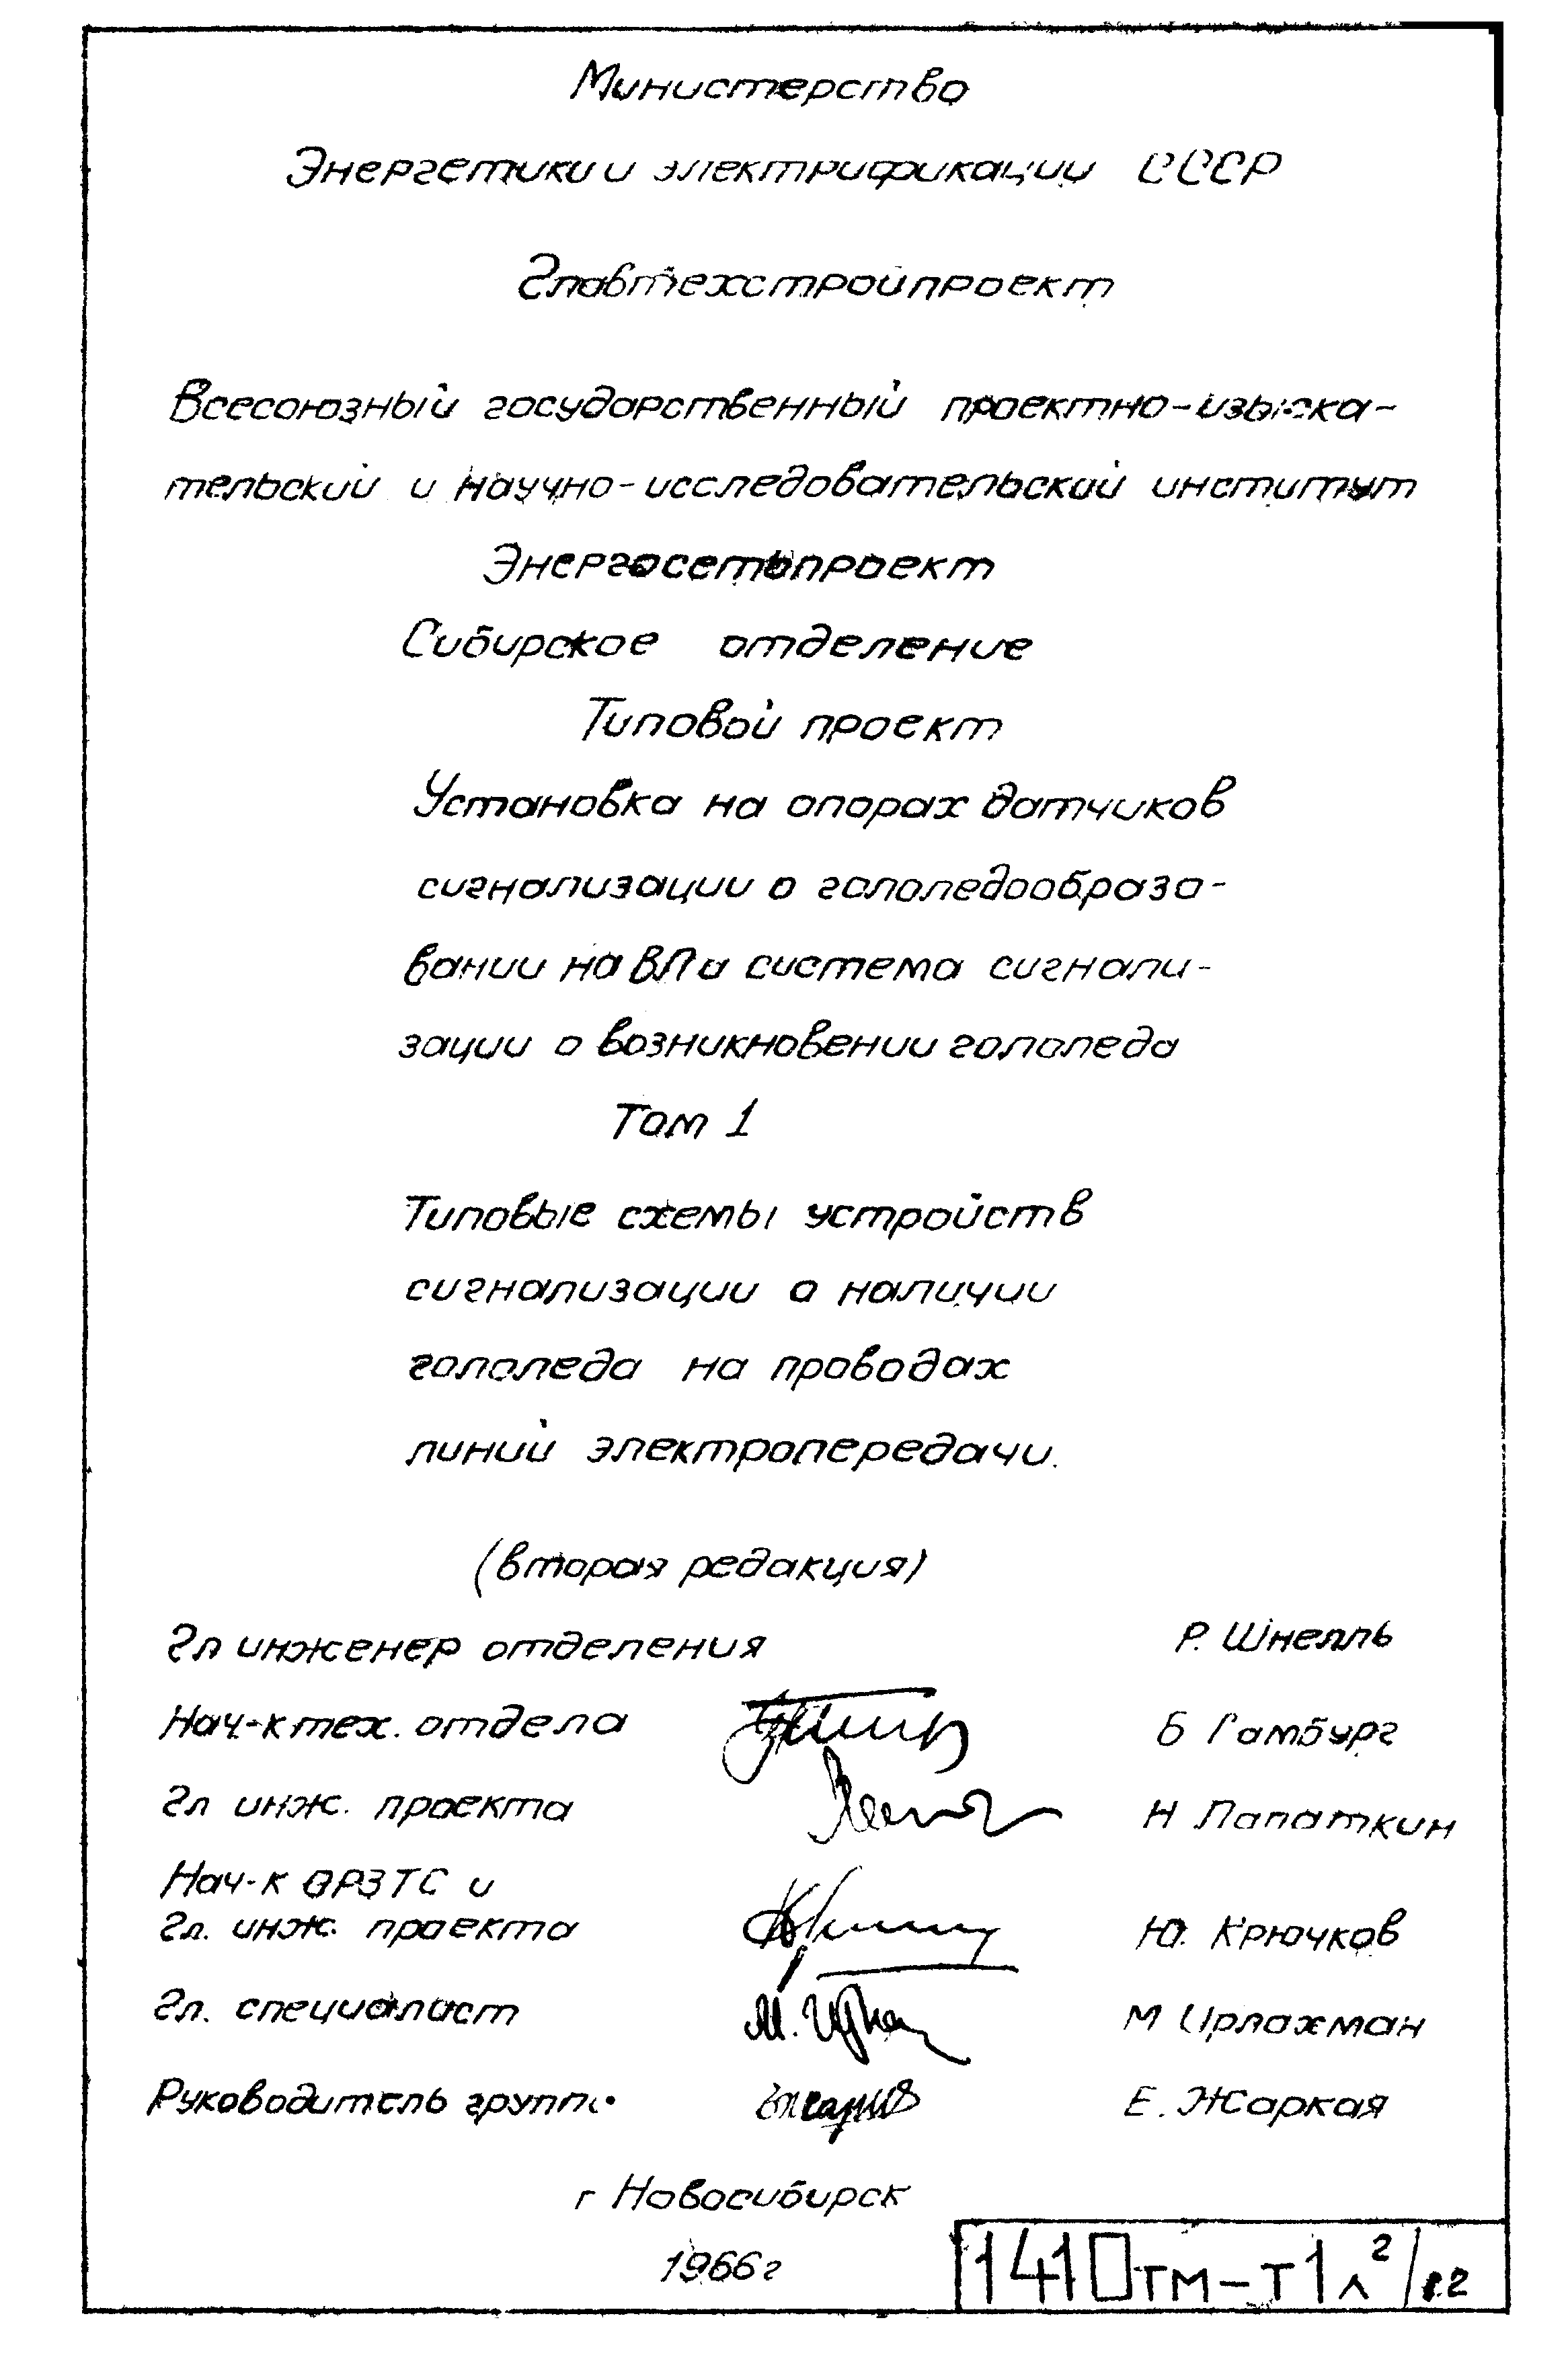 Министерство
Энергетики и электрификации СССР
Главтехстройпроект
Всесоюзный государственный проектно-изыска-
тельский и научно-исследовательский институт
Энергосетьпроект
Сибирское отделение
Типовой проект
Установка на опорах датчиков
сигнализации о гололедообразо-
вании на ВЛ и система сигнали-
зации о возникновении гололеда
Том 1
Типовые схемы устройств
сигнализации о наличии
гололеда на проводах
линий электропередачи.
(вторая редакция)
Гл инженер отделения Р. Шнелль
Нач-к тех. отдела Б Гамбург
Гл инж. проекта Н Лапаткин
Нач-к ОРЗТС и
Гл. инж. проекта Ю. Крючков
Гл. специалист М Ирлахман
Руководитель группы Е. Жаркая
г Новосибирск
1966 г
1410тм-т1 л 2/